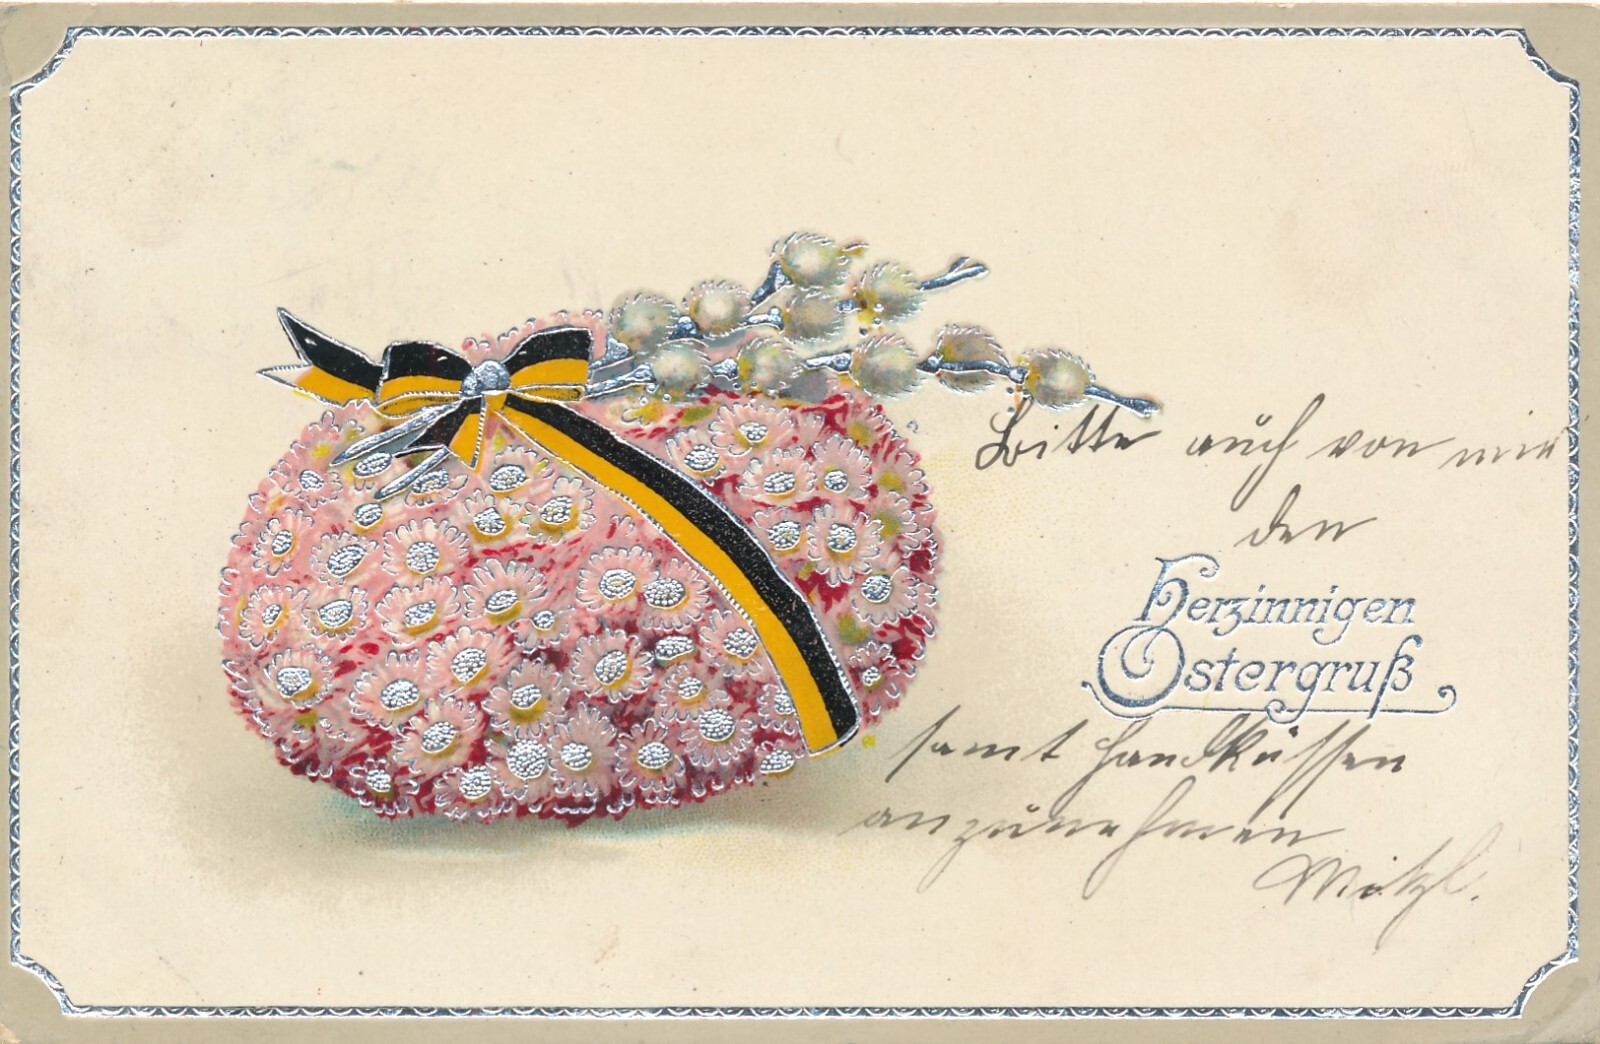 Bitte auch von mir
den
Herzinnigen
Ostergruß
samt Handküssen
anzunehmen
Mitzl.